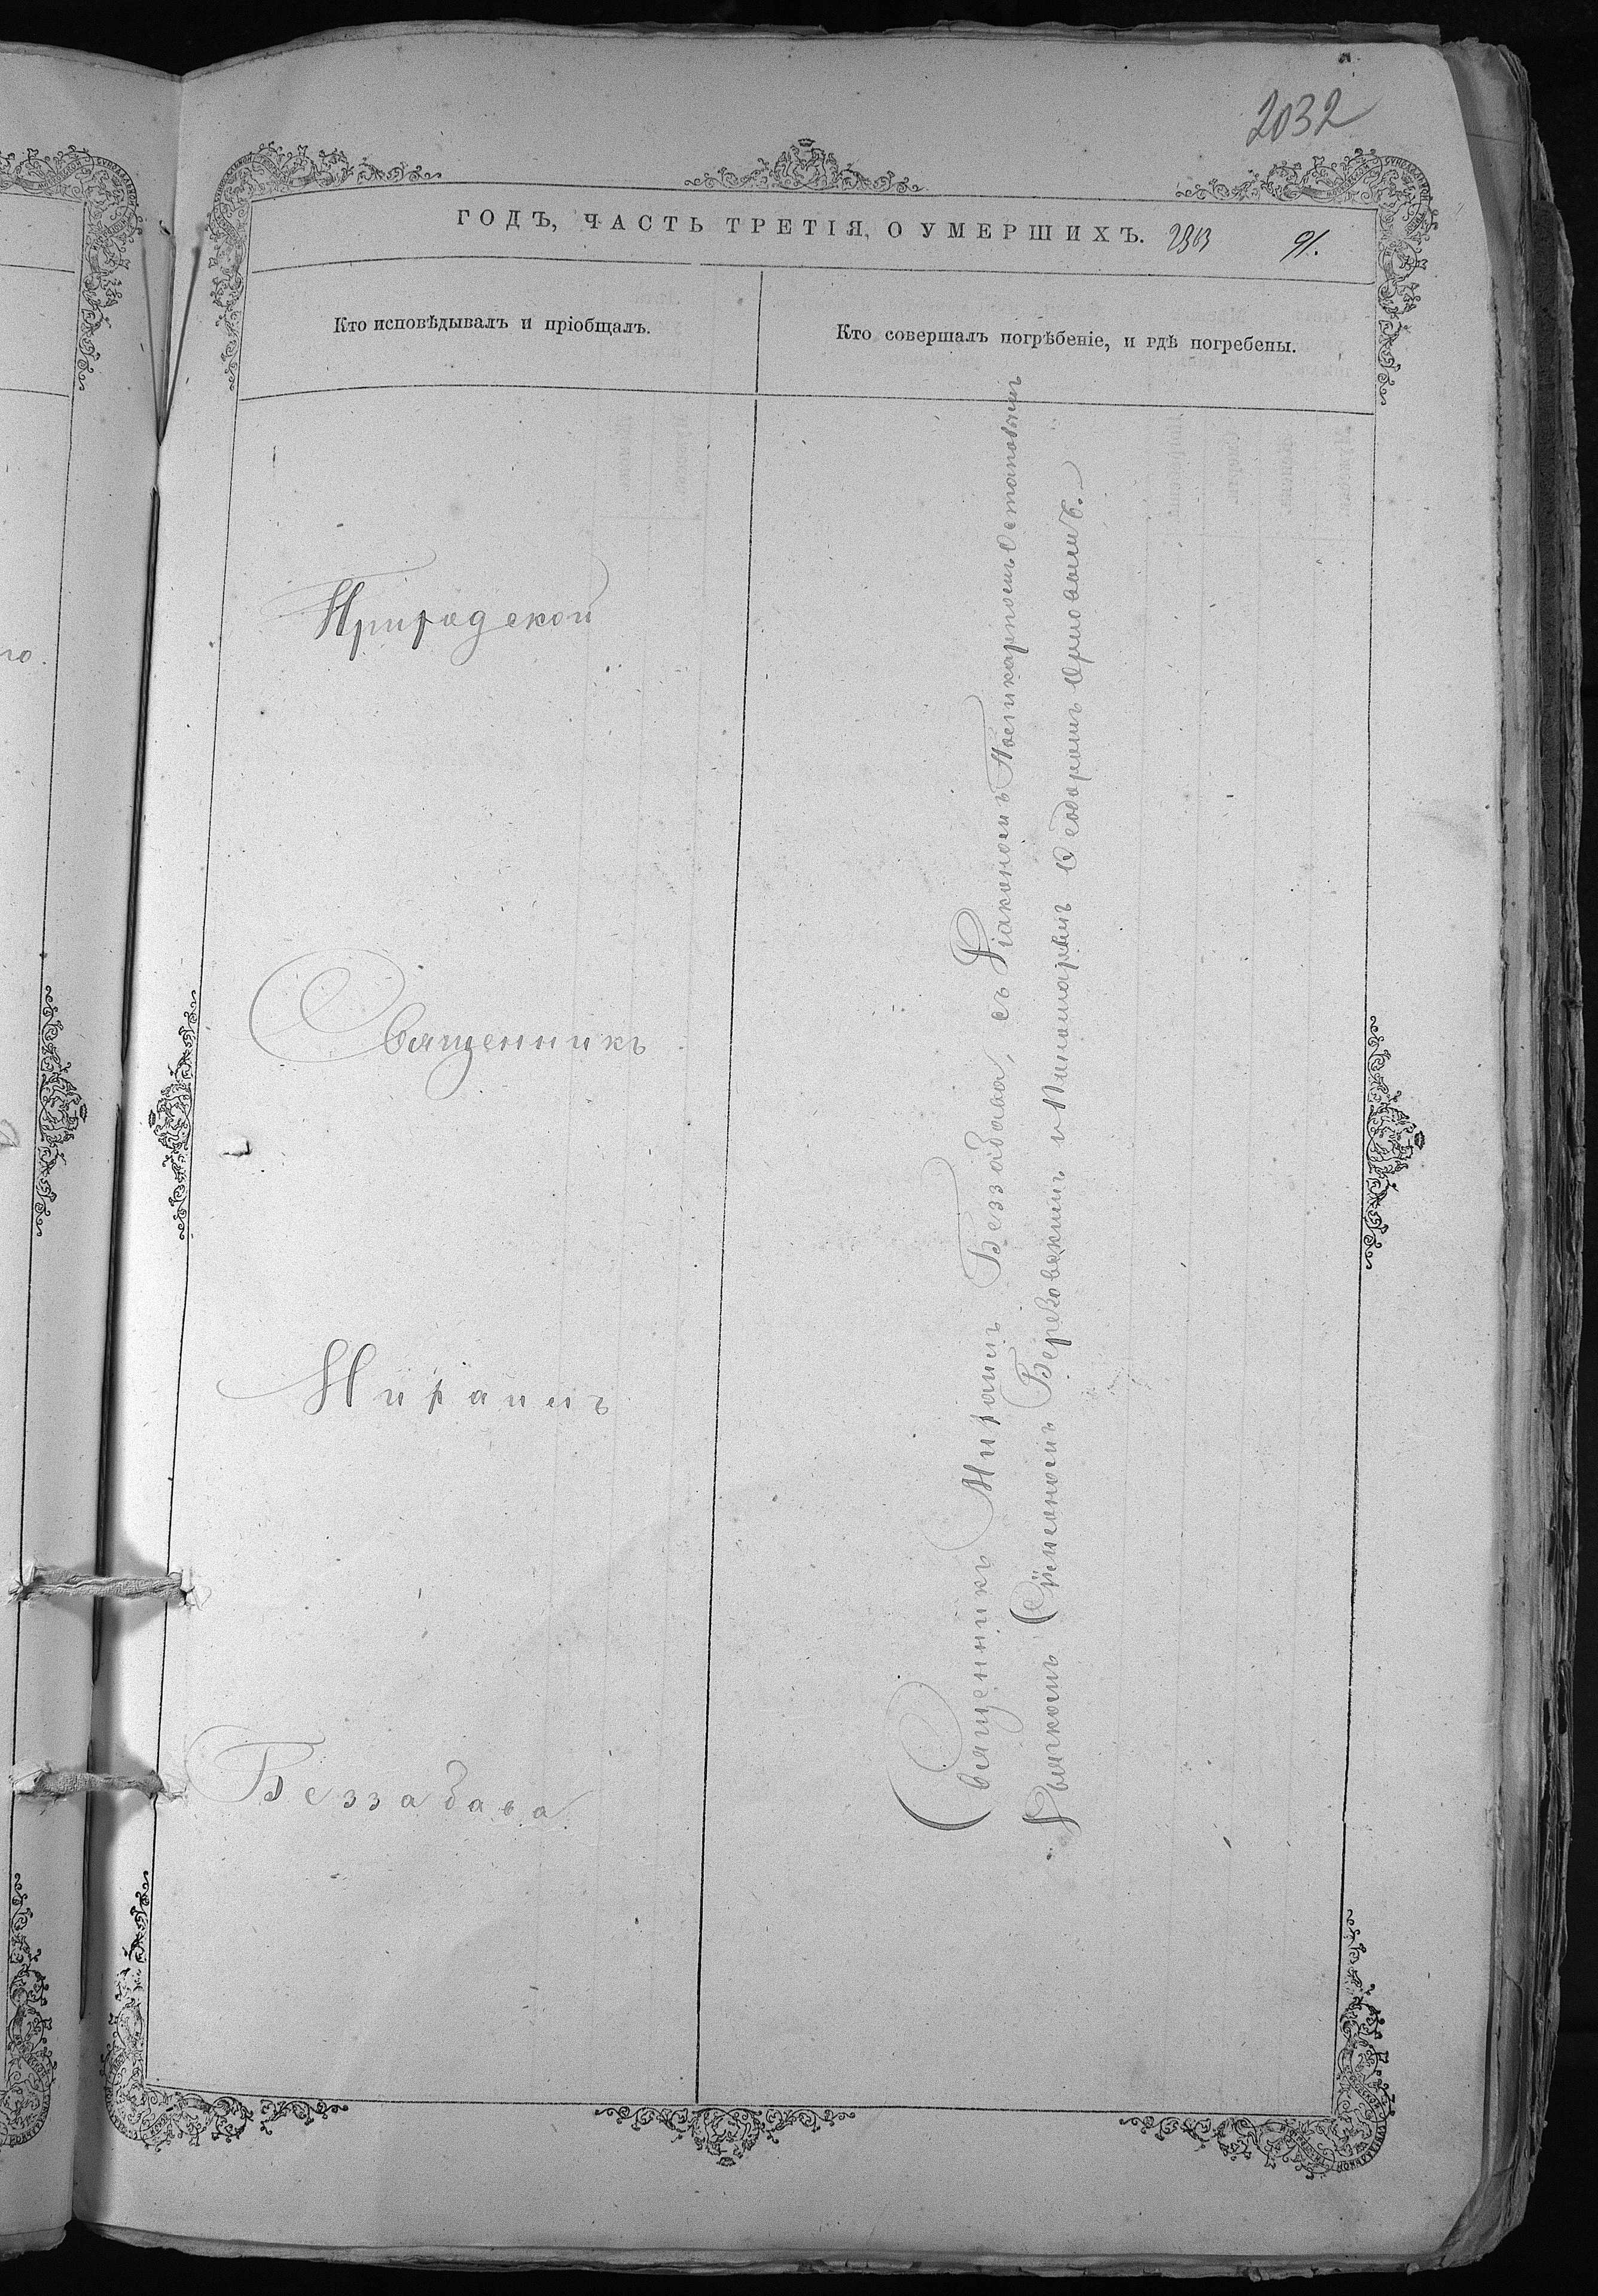 2032
ГОДЪ, ЧАСТЬ ТРЕТІЯ, О УМЕРШИХЪ. 91.
Кто исповѣдывалъ и пріобщалъ.
Кто совершалъ погрѣбеніе, и гдѣ погребены.
Приходской
Священникъ
Беззабава
Священникъ Беззабава, съ Діакономъ Поликарпомъ Остаповымъ
Дьячкомъ Сѵмеономъ Верековскимъ и Пономаремъ Ѳеодоромъ Орловымъ.